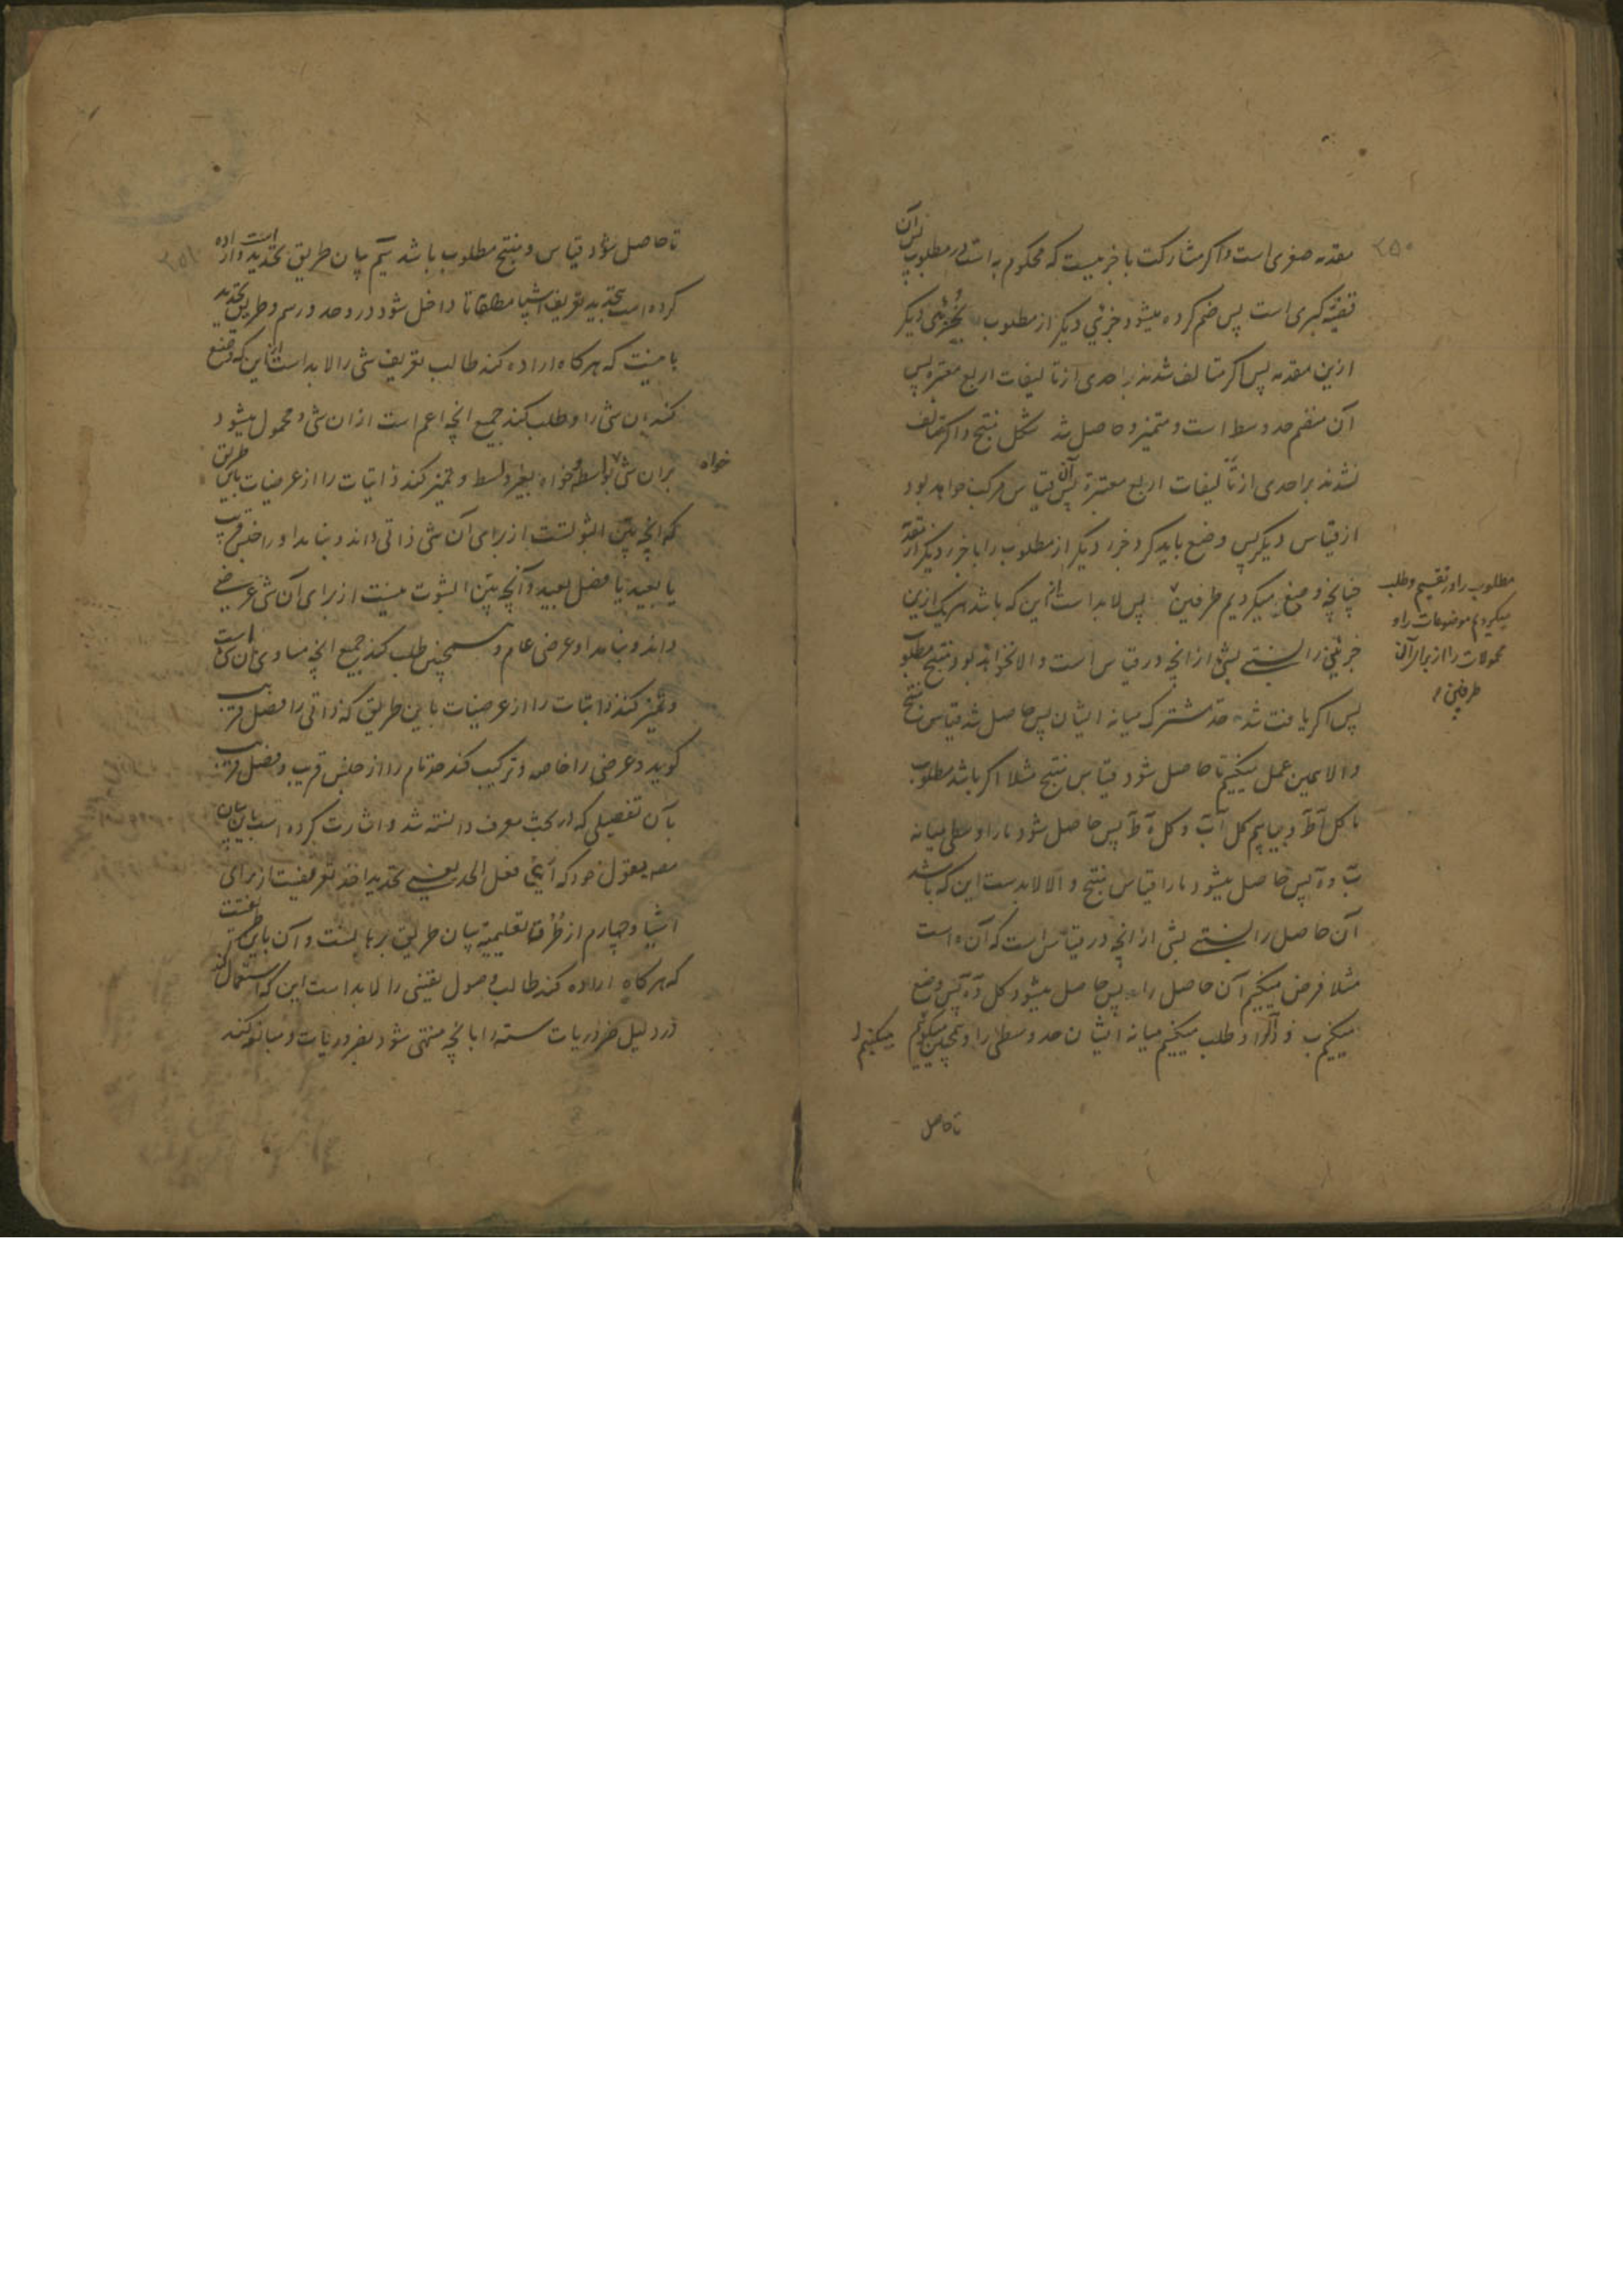 ۲۵۰
مقدمه صغری است و اگر مشارکت با جزئیست که محکوم به است در مطلوب پس آن
قضیه کبری است پس ضم کرده میشود جزئی دیگر از مطلوب بجزئی دیگر
ازین مقدمه پس اگر متالف شدند بر احدی از تالیفات اربع معتبره پس
آن منضم حد وسط است و متمیز و حاصل شد شکل منتج و اگر متالف
نشدند بر احدی از تالیفات اربع معتبرة پس آن قیاس مرکب خواهد بود
از قیاس دیگر پس وضع باید کرد جزء دیگر از مطلوب را با جزء دیگر از مقدمه
چنانچه وضع میکردیم طرفین پس لابد است از این که باشد هر یک ازین
جزئین را نسبتے بشئ از انچه در قیاس است و الا نخواهد بود منتج مطلوب
پس اگر یافت شد حد مشترک میانه ایشان پس حاصل شد قیاس منتج
و الا همین عمل میکنیم تا حاصل شود قیاس منتج مثلا اگر باشد مطلوب
ما کل آ ط و بیابیم کل آ ب و کل ه ط پس حاصل شود ما را وسطی میانه
ب و ه پس حاصل میشود ما را قیاس منتج و الا لابدست این که باشد
آن حاصل را نسبتے بشی از انچه در قیاس است که آن ه است
مثلا فرض میکنیم آن حاصل را پس حاصل میشود کل ده پس وضع
میکنیم ب و د را و طلب میکنیم میانه ایشان حد وسطی را و همچنین میکنیم
مطلوب را در تقسیم و طلب
میکردیم موضوعات را و
محمولات را از برای آن
طرفین
تا حاصل
۲۵۱
تا حاصل شود قیاس و منتج مطلوب باشد سیم بیان طریق تحدید است و اراده
کرده است بتحدید تعریف اشیا مطلقا تا داخل شود در و حد و رسم و طریق تحدید
باینست که هرگاه اراده کند طالب تعریف شی را لابد است از این که وضع
کند ان شی را و طلب کند جمیع انچه اعم است از ان شی و محمول میشود
بران شی خواه بواسطه خواه بغیر واسطه و تمیز کند ذاتیات را از عرضیات باین طریق
که انچه بین الثبوتست از برای آن شی ذاتی داند و بنامد او را جنس قریب
یا بعید یا فصل بعید و آنچه بین الثبوت نیست از برای آن شی عرضے
داند و بنامد او عرضی عام و همچنین طلب کند جمیع انچه مساوی ان شی است
و تمیز کند ذاتیات را از عرضیات باین طریق که ذاتی را فصل قریب
گوید و عرضی را خاصه و ترکیب کند حد تام را از جنس قریب و فصل قریب
بآن تفصیلی که در بحث معرف دانسته شد و اشارت کرده است باین بیان
مصه بقول خود که آنی فعل الحد یعنے تحدید اخذ تعریفست از برای
اشیا و چهارم از طرق تعلیمیة بیان طریق برهانست و آن باین طریقست
که هرگاه اراده کند طالب وصول یقینی را لابد است این که استعمال کند
در دلیل ضروریات سته را با انچه منتهی شود بضروریات و مبالغه کند